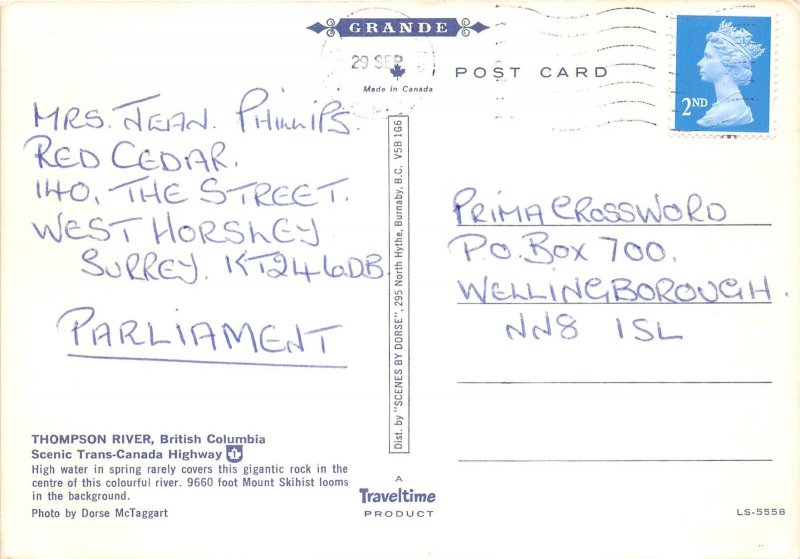 GRANDE
29 SEP
Made in Canada
POST CARD
2ND
MRS. JEAN. PHILLIPS.
RED CEDAR.
140, THE STREET.
WEST HORSLEY
SURREY. KT246DB.
PARLIAMENT
THOMPSON RIVER, British Columbia
Scenic Trans-Canada Highway 1
High water in spring rarely covers this gigantic rock in the
centre of this colourful river. 9660 foot Mount Skihist looms
in the background.
Photo by Dorse McTaggart
Dist. by "SCENES BY DORSE", 295 North Hythe, Burnaby, B.C. V5B 1G6
A
Traveltime
PRODUCT
PRIMA CROSSWORD
P.O. BOX 700,
WELLINGBOROUGH.
NN8 1SL
LS-5558